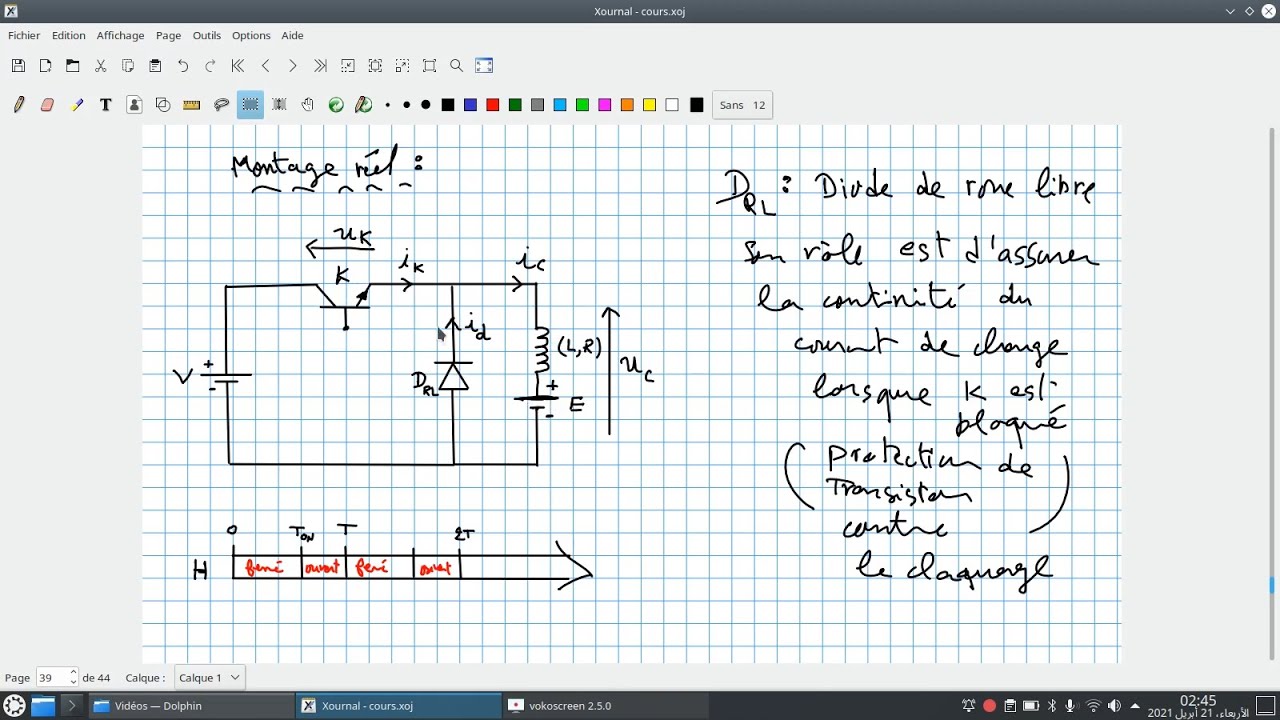 Xournal - cours.xoj
Fichier Edition Affichage Page Outils Options Aide
Sans 12
Montage réel :
D_RL : Diode de roue libre
Son rôle est d'assurer
la continité du
courant de charge
lorsque K est
bloqué
(Protection de
Transistor
contre )
le claquage
u_K
K
i_K
i_C
i_d
V
+
-
D_RL
(L,R)
+
E
-
u_C
0 T_ON T 2T
H fermé ouvert fermé ouvert
Page 39 de 44 Calque : Calque 1
Vidéos — Dolphin
Xournal - cours.xoj
vokoscreen 2.5.0
02:45
الأربعاء, 21 أبريل 2021